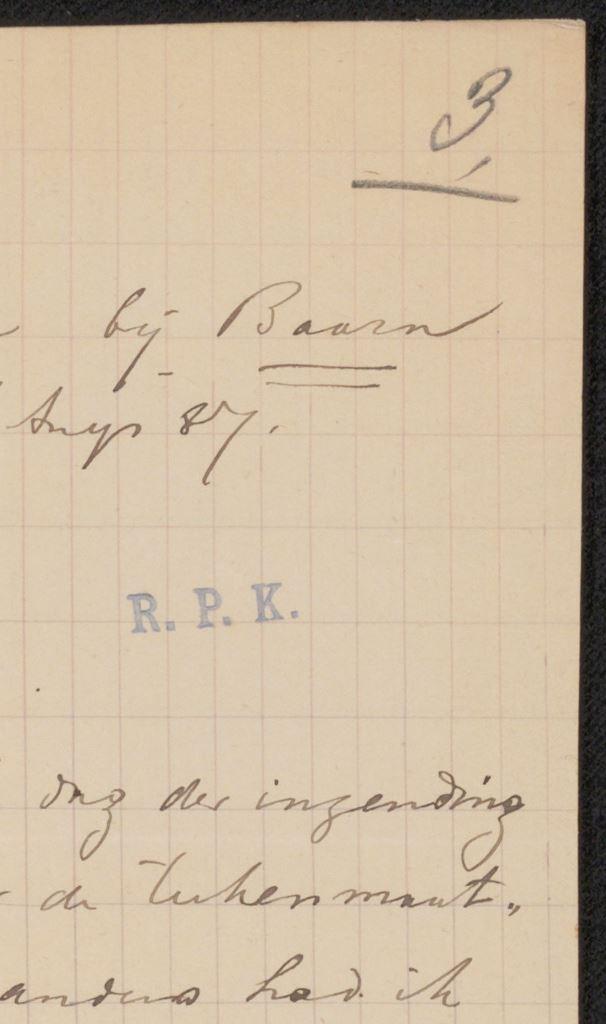 3
bij Baarn
Augs 87.
R. P. K.
dag der inzending
de
anders had ik